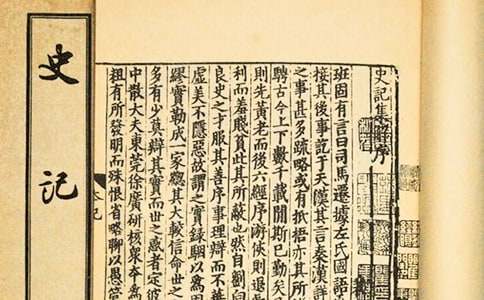 史記集解序
班固有言曰司馬遷據左氏國語
接其後事訖于天漢其言秦漢詳
之事甚多疏略或有抵捂亦其所
騁古今上下數千載間斯已勤矣
則先黃老而後六經序游俠則退
利而羞賤貧此其所蔽也然自劉向
良史之才服其善序事理辯而不華
虛美不隱惡故謂之實錄駰以為固
繆實勒成一家總其大較信命世之
多有少莫辯其實而世之惑者定彼
中散大夫東莞徐廣研核眾本為
粗有所發明而殊恨省略聊以愚管
史記